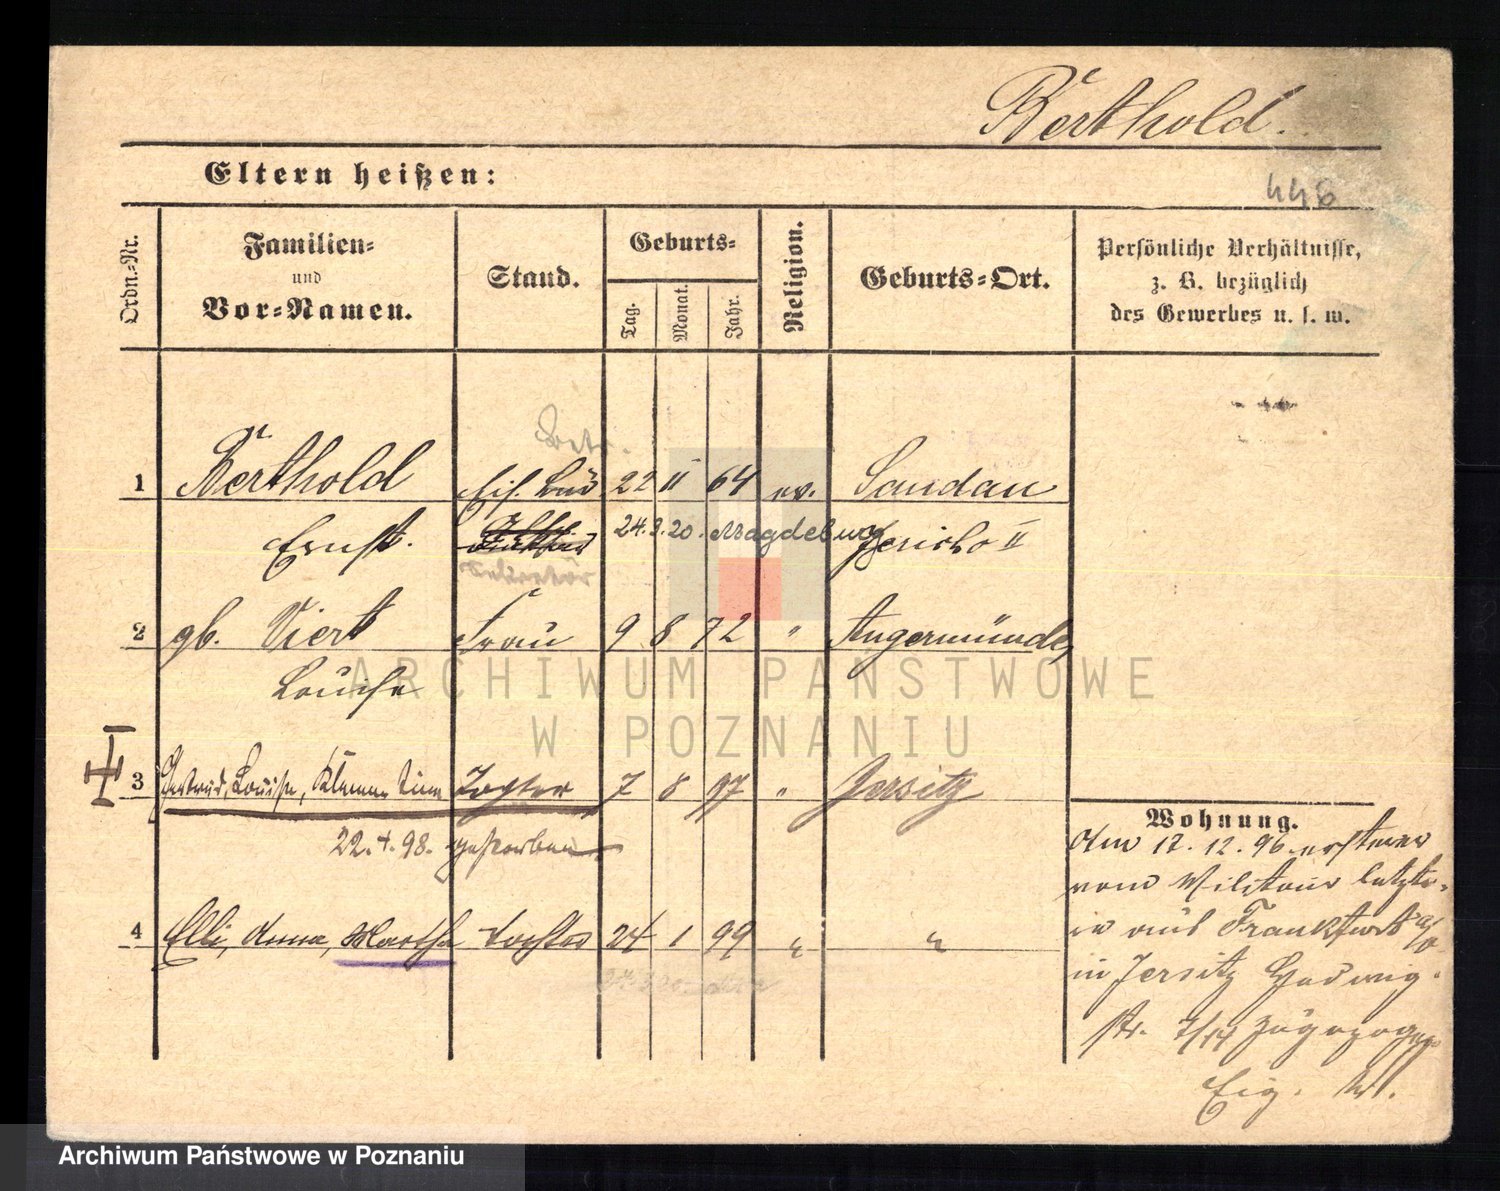 Berthold.
Eltern heißen:
448
Ordn.-Nr.
Familien-
und
Vor-Namen.
Stand.
Geburts-
Tag.
Monat.
Jahr.
Religion.
Geburts-Ort.
Persönliche Verhältnisse,
z. B. bezüglich
des Gewerbes u. s. w.
1 Berthold Eis. 22 II 64 ev. Sandau
Ernst. 24.9.20. Magdeburg Jericho II
Sekretär
2 gb. Viert Frau 9 8 72 " Angermünde
Louise
3 Gertrud, Louise, Klementine Tochter 7 8 97 " Jersitz
22.4.98. gestorben
4 Elli, Anna, Martha Tochter 24 1 99 " "
Wohnung.
Am 12.12.96. ersterer
vom Militair letzte-
re aus Frankfurt a/O
in Jersitz Hedwig-
str. 7/14 zugezogen
Eig. W.
ARCHIWUM PAŃSTWOWE
W POZNANIU
Archiwum Państwowe w Poznaniu